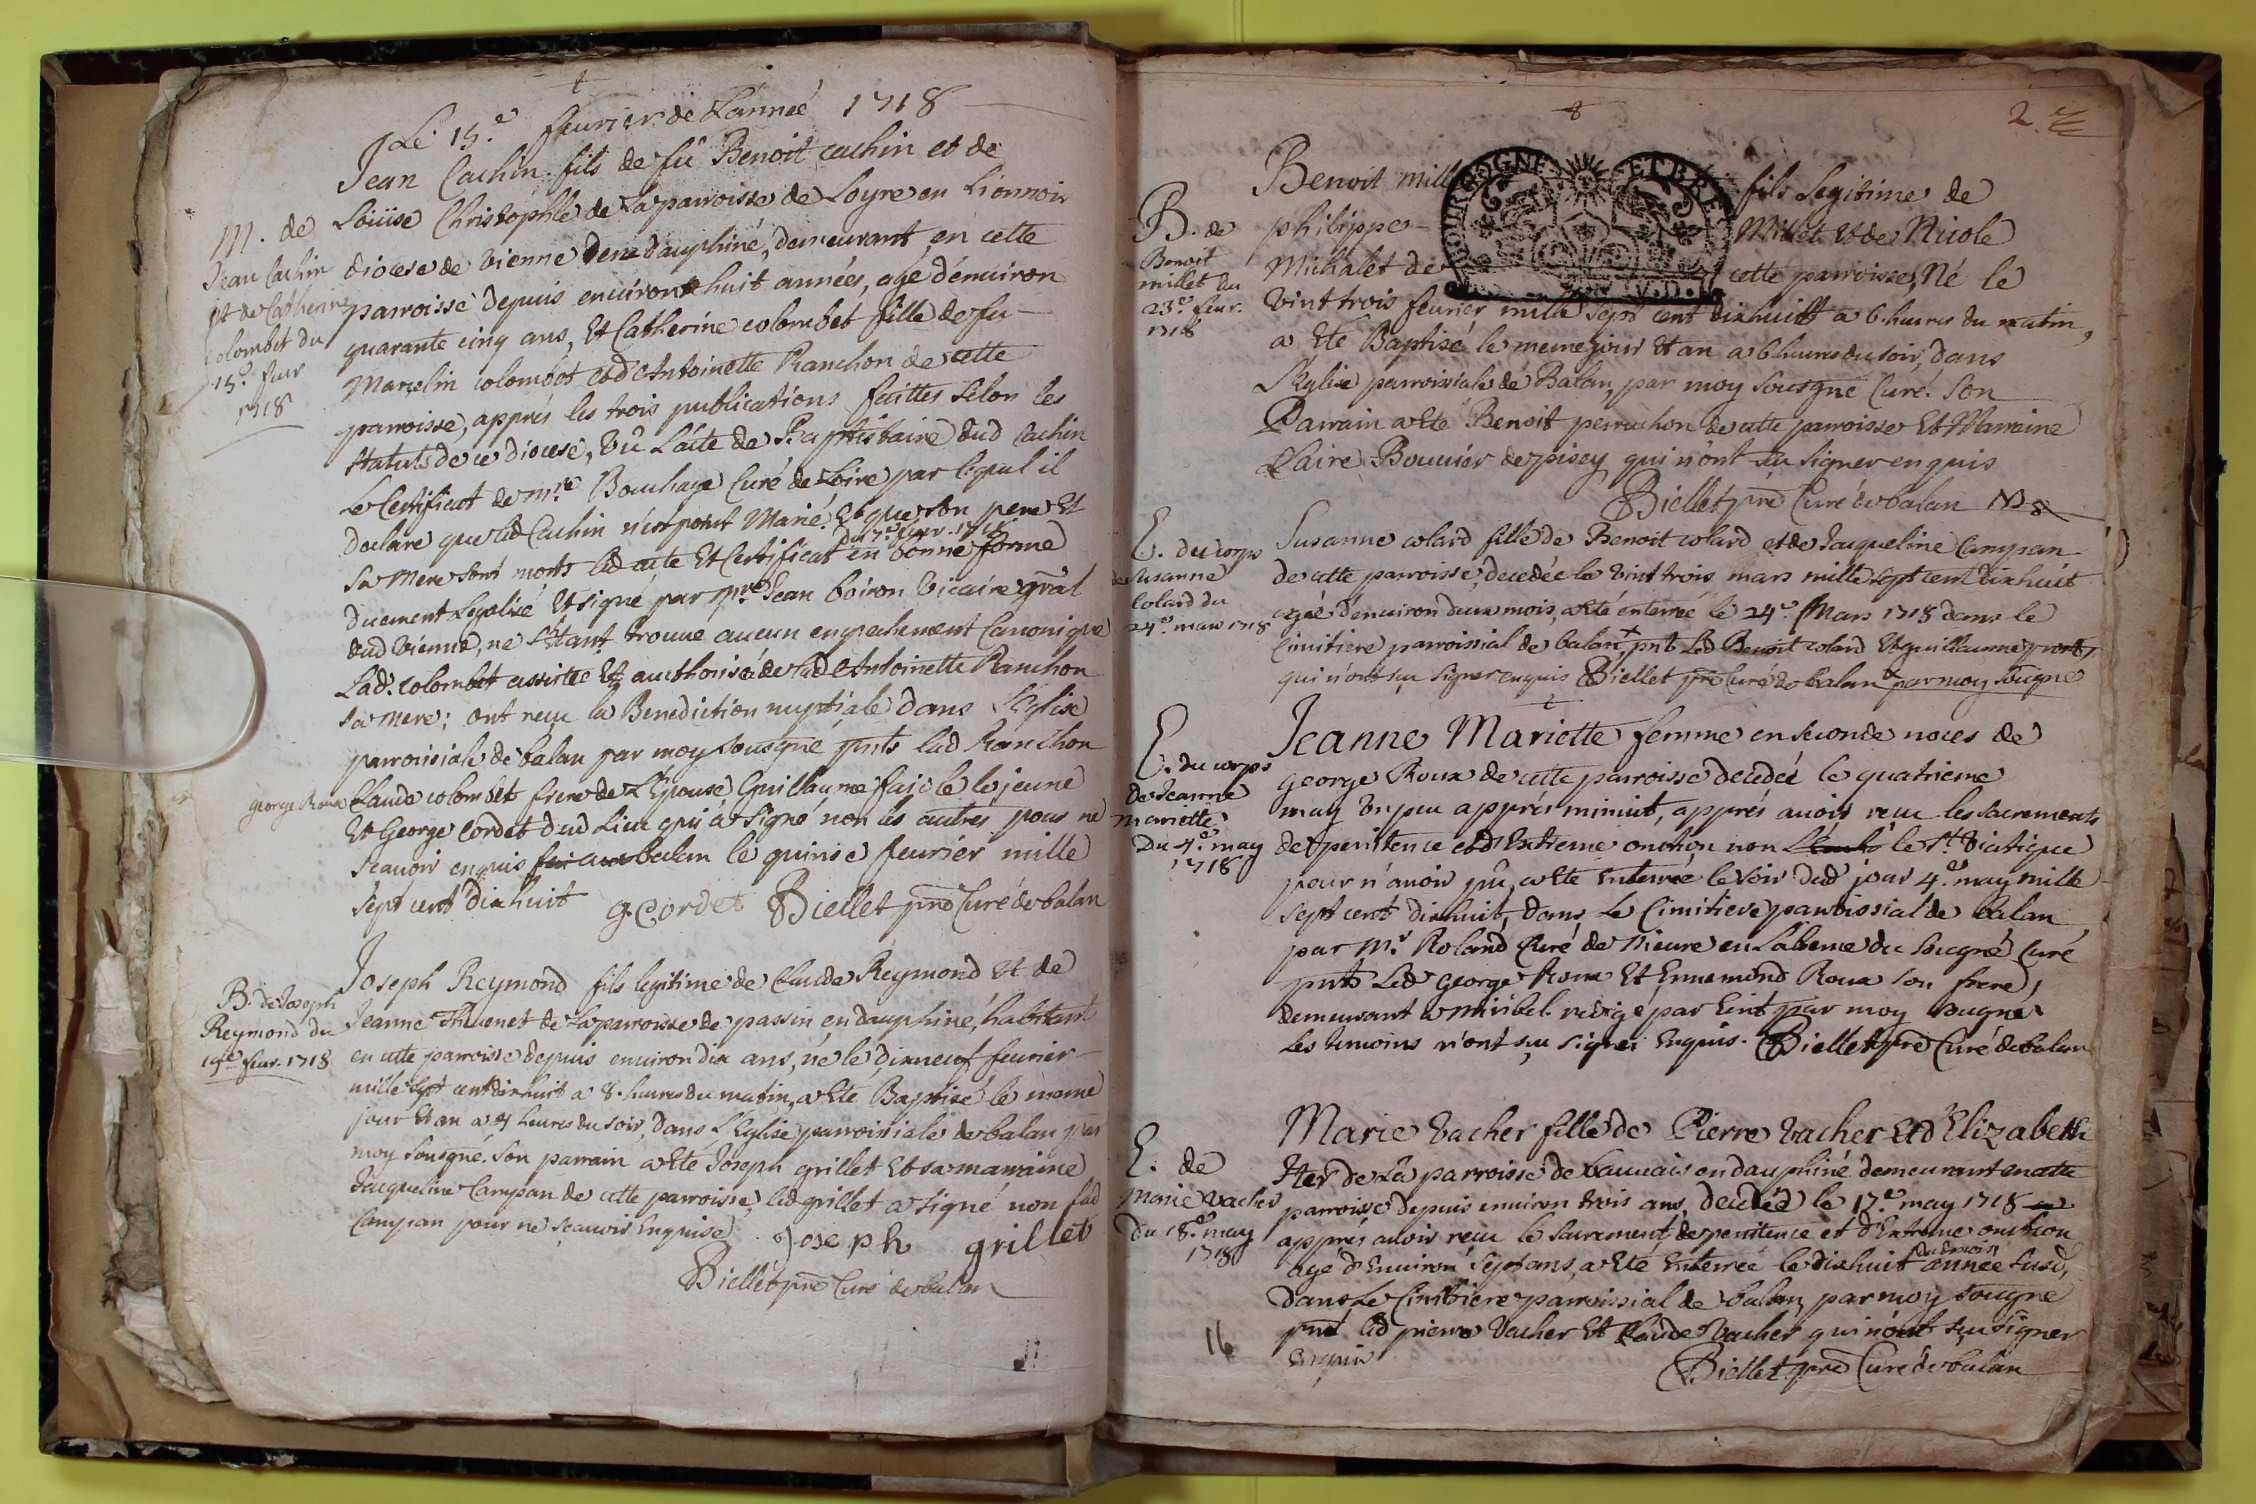 Le 15.e feurier de L'année 1718
Jean Cachin fils de fû Benoit cachin et de
Loüise Christophle de La parroisse de Loyre en Lionnois
diocese de vienne en dauphiné, demeurant en cette
parroisse depuis environ huit années, agé d'enuiron
quarante cinq ans, Et Catherine colombet fille de fu
Marcelin colombet et d'Antoinette Ranchon de cette
parroisse, apprés les trois publications faittes selon les
statuts de ce diocese, vû L'acte de Baptistaire dud Cachin
Le Certificat de mre Bouchage Curé de Loire par lequel il
declare que led Cachin n'est point Marié. Et que son pere Et
du 7.e feur. 1718
sa mere sont morts led acte Et Certificat en bonne forme
duement Legalisé Et signé par mre Jean boiron vicaire gñal
dud vienne, ne s'étant trouué aucun empechement Canonique
Lad. colombet assistée Et authorisée de lad Antoinette Ranchon
sa mere; ont reçu la Benediction nuptiale dans L'Eglise
parroissiale de balan par moy sousgné pñts lad Ranchon
george Roux
Claude colombet frere de L'Epouse Guillaume le jeune
Et George Cordet dud Lieu qui a signé non les autres pour ne
scauoir enquis balan le quinse feurier mille
sept cent dixhuit
G. cordet Biellet pre Curé de balan
M. de
Jean Cachin
et de Catherine
colombet du
15.e feur
1718
B. de Joseph
Reymond du
19.e feur. 1718
Joseph Reymond fils legitime de Claude Reymond Et de
Jeanne Thuenet de La parroisse de passin en dauphiné, habitant
en cette parroisse depuis enuiron dix ans, né le dixneuf feurier
mille sept cent dixhuit a 8. heures du matin, a Eté Baptisé le meme
jour Et an a 4 heures du soir, dans L'Eglise parroissiale de balan par
moy sousgné. son parrain a Eté Joseph grillet Et sa marraine
Jacqueline Campan de cette parroisse, led grillet a signé non lad
Campan pour ne scauoir Enquise.
Joseph grillet
Biellet pre Curé de balan
2.e
BOURGOGNE ET BRE
Benoit mill fils Legitime de
philippe Millet Et de Nicole
Michalet de cette parroisse, Né le
vint trois feurier mille sept cent dixhuit a 6. heures du matin,
a Eté Baptisé le meme jour Et an a 6 heures du soir, dans
L'Eglise parroissiale de Balan, par moy sousgné Curé. son
Parrain a Eté Benoit perruchon de cette parroisse Et Marraine
Claire Bouuier de pisey qui n'ont su signer enquis
Biellet pre Curé de balan
B. de
Benoit
millet du
23.e feur.
1718
E. du corps
de Susanne
Colard du
24.e mars 1718
Susanne colard fille de Benoit colard et de Jacqueline Campan
de cette parroisse, decedée le vint trois mars mille sept cent dixhuit
agée d'enuiron deux mois, a Eté enterrée le 24.e Mars 1718 dans le
Cimitiere parroissial de balan + pnt Led Benoit colard Et guillaume
qui n'ont sçu signer enquis Biellet pre Curé de balan + par moy sougné
E. du corps
de Jeanne
mariette
Du 4.e may
1718
Jeanne Mariette femme en seconde noces de
george Roux de cette parroisse decedée le quatrieme
may un peu apprés minuit, apprés auoir reçu les sacrements
de penitence et d'Extreme onction non le st. viatique
pour n'auoir pû, a Eté enterrée le soir dud jour 4.e may mille
sept cent dixhuit, dans Le Cimitiere parroissial de balan
par Mr Roland Curé de Nieure en L'absence du sougné Curé
pnts Led George Roux Et Ennemond Roux son frere,
demeurant a miribel. redigé par Ecrit par moy sougné
Les temoins n'ont sçu signer Enquis. Biellet pre Curé de balan
E. de
Marie vacher
Du 18.e may
1718
Marie vacher fille de Pierre vacher Et d'Elizabeth
Iter de La parroisse de bauuais en dauphiné demeurant en cette
parroisse depuis enuiron trois ans, decedée le 17.e may 1718
apprés auoir reçu le sacrement de penitence et d'Extreme onction
du d mois
agé d'Enuiron sept ans, a Eté Enterrée le dixhuit année susd,
dans Le Cimitiere parroissial de balan par moy sougné
pnt led pierre Vacher Et Claude Vacher qui n'ont sçu signer
Enquis
Biellet pre Curé de balan
16